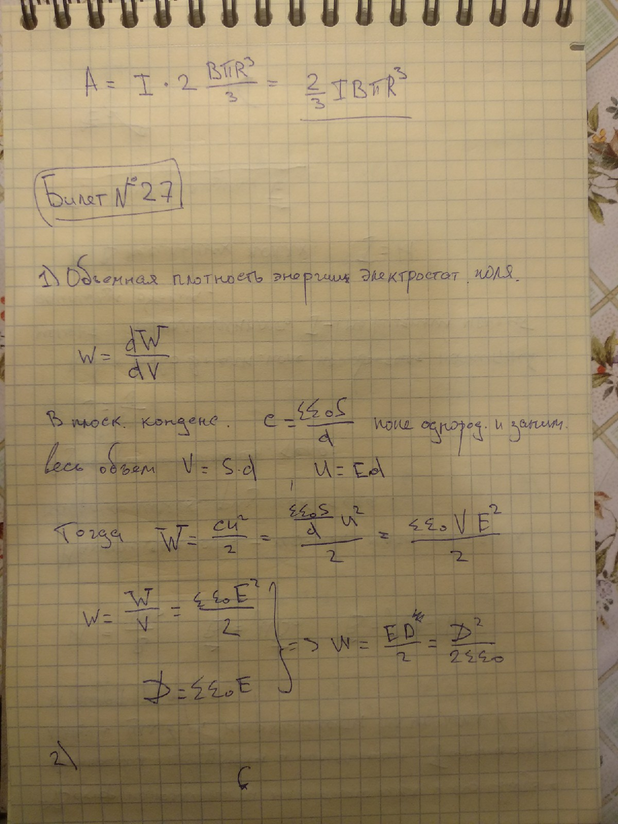 A = I · 2 BπR³/3 = 2/3 IBπR³
Билет №27
1) Объемная плотность энергии электростат. поля.
w = dW/dV
В плоск. конденс. c = εε₀S/d поле однород. и заним.
весь объем V = S·d , U = Ed
Тогда W = cu²/2 = (εε₀S/d u²)/2 = εε₀VE²/2
w = W/V = εε₀E²/2
D = εε₀E } => w = ED/2 = D²/2εε₀
2)